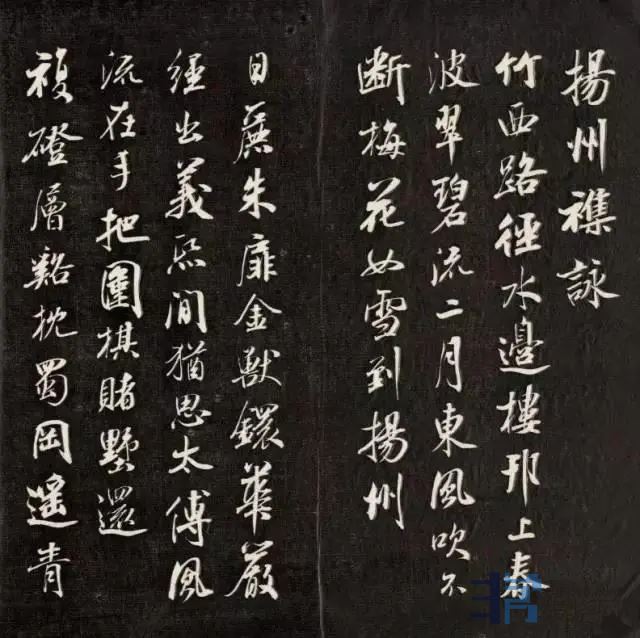 揚州襍詠
竹西路徑水邊樓邗上春
波翠碧流二月東風吹不
断梅花如雪到揚州
日朱扉金獸鐶華嚴
經出義熙間猶思太傅風
流在手把圍棋賭墅還
複磴層谿枕蜀岡遥青